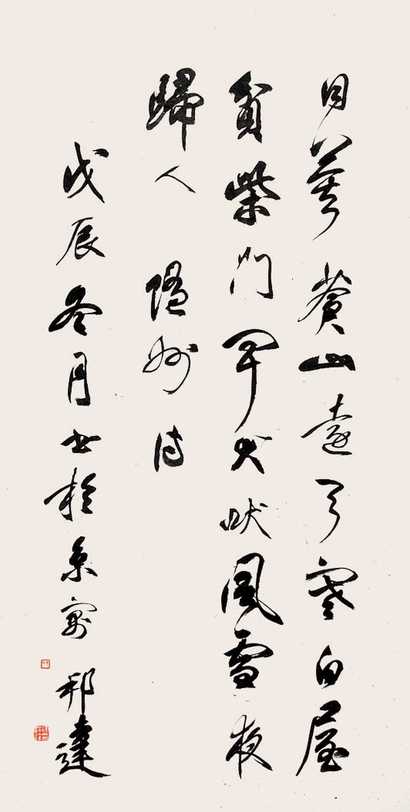 日暮蒼山遠天寒白屋
貧柴門聞犬吠風雪夜
歸人 隨州诗
戊辰冬月书於京寓 邦達